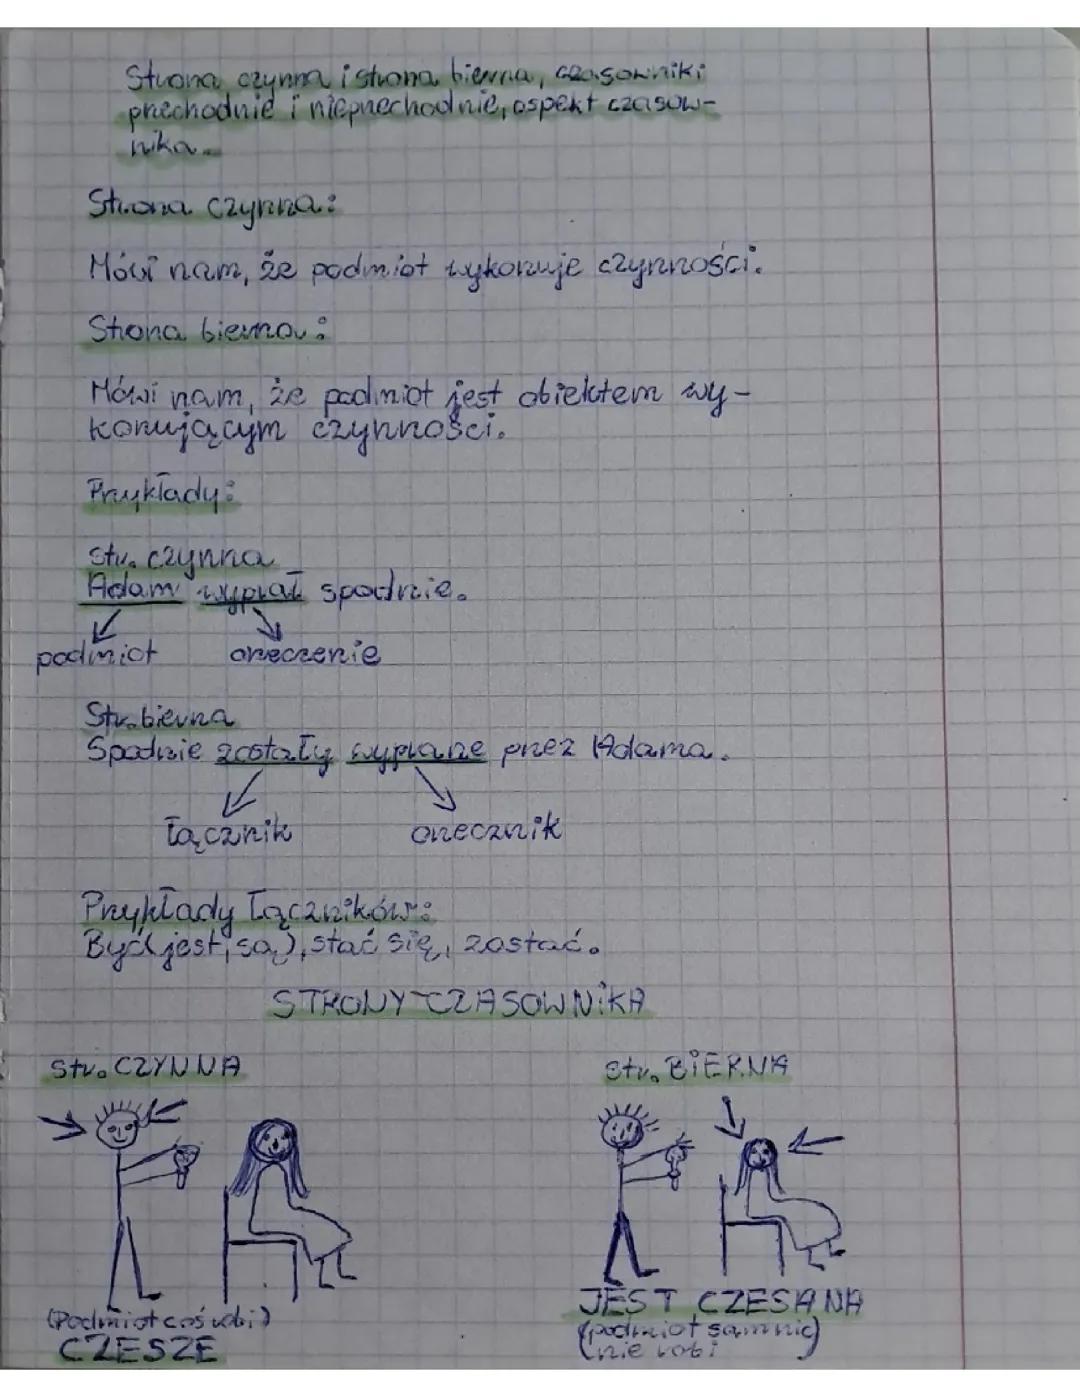 Strona czynna i strona bierna, czasowniki
przechodnie i nieprzechodnie, aspekt czasow-
nika.
Strona czynna:
Mówi nam, że podmiot wykonuje czynności.
Strona bierna:
Mówi nam, że podmiot jest obiektem wy-
konującym czynności.
Przykłady:
Str. czynna
Adam wyprał spodnie.
podmiot orzeczenie
Str. bierna
Spodnie zostały wyprane przez Adama.
łącznik orzecznik
Przykłady łączników:
Być(jest, są), stać się, zostać.
STRONY CZASOWNIKA
str. CZYNNA str. BIERNA
(Podmiot coś robi) JEST CZESANA
CZESZE (podmiot sam nic)
(nie robi